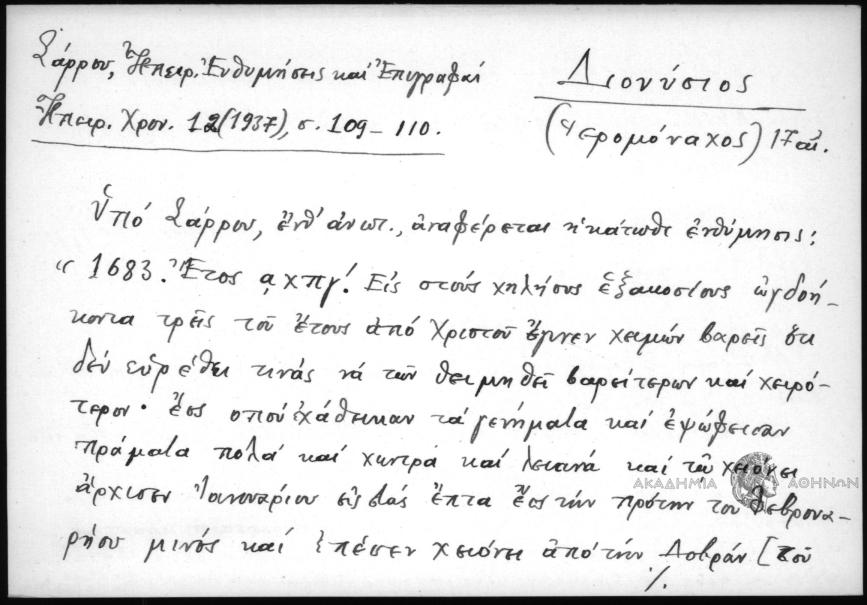 Σάρρου, Ἠπειρ. Ἐνθυμήσεις καὶ Ἐπιγραφαί
Ἠπειρ. Χρον. 12 (1937), σ. 109-110.
Διονύσιος
(Ἱερομόναχος) 17 αἰ.
Ὑπό Σάρρου, ἔνθ' ἀνωτ., ἀναφέρεται ἡ κάτωθι ἐνθύμησις:
" 1683. Ἔτος ͵αχπγ! Εἰς στούς χηλήσυς ἑξακοσίους ὠγδοή-
κοντα τρεῖς τοῦ ἔτους ἀπό Χριστοῦ ἔγινεν χειμών βαρεῖς ὅτι
δέν εὑρέθει τινάς νά τῶν θειμηθεῖ βαρείτερων καί χειρό-
τερον· ἕος οπού ἐχάθεικαν τά γενήματα καί ἐψώφεισαν
πράματα πολά καί χυντρά καί λειανά καί τῶ χειόνει
ἄρχισεν Ἰαννουαρίου εἰς τάς ἕπτα ἕος τήν πρότην τοῦ Φεβρουα-
ρήου μινός καί ἔπεσεν χειόνει ἀπό τήν Δοβράν [τοῦ
./.
ΑΚΑΔΗΜΙΑ ΑΘΗΝΩΝ